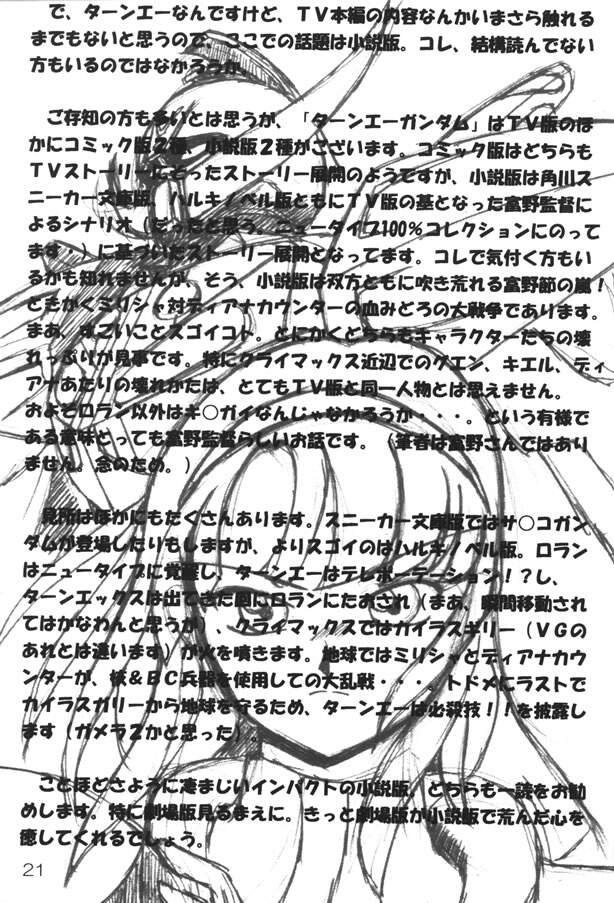 で、ターンエーなんですけど、ＴＶ本編の内容なんかいまさら触れる
までもないと思うので、ここでの話題は小説版。コレ、結構読んでない
方もいるのではなかろうか。
ご存知の方も多いとは思うが、「ターンエーガンダム」はＴＶ版のほ
かにコミック版２種、小説版２種がございます。コミック版はどちらも
ＴＶストーリーにそったストーリー展開のようですが、小説版は角川ス
ニーカー文庫版、ハルキノベル版ともにＴＶ版の基となった富野監督に
よるシナリオ（だったと思う。ニュータイプ100％コレクションにのって
ます。）に基づいたストーリー展開となってます。コレで気付く方もい
るかも知れませんが、そう、小説版は双方ともに吹き荒れる富野節の嵐！
ときかくミリシャ対ディアナカウンターの血みどろの大戦争であります。
まあ、すごいことスゴイコト。とにかくどちらもキャラクターたちの壊
れっぷりが見事です。特にクライマックス近辺でのグエン、キエル、ディ
アナあたりの壊れかたは、とてもＴＶ版と同一人物とは思えません。
およそロラン以外はキ○ガイなんじゃなかろうか・・・。という有様で
ある意味とっても富野監督らしいお話です。（筆者は富野さんではあり
ません。念のため。）
見所はほかにもたくさんあります。スニーカー文庫版ではサ○コガン
ダムが登場したりもしますが、よりスゴイのはハルキノベル版。ロラン
はニュータイプに覚醒し、ターンエーはテレポーテーション！？し、
ターンエックスは出てきた割にロランにたおされ（まあ、瞬間移動され
てはかなわんと思うが）、クライマックスではカイラスギリー（ＶＧの
あれとは違います）が火を噴きます。地球ではミリシャとディアナカウ
ンターが、核＆ＢＣ兵器を使用しての大乱戦・・・。トドメにラストで
カイラスガリーから地球を守るため、ターンエーは必殺技！！を披露し
ます（ガメラ２かと思った）。
ことほどさように凄まじいインパクトの小説版、どちらも一読をお勧
めします。特に劇場版見るまえに。きっと劇場版が小説版で荒んだ心を
癒してくれるでしょう。
21